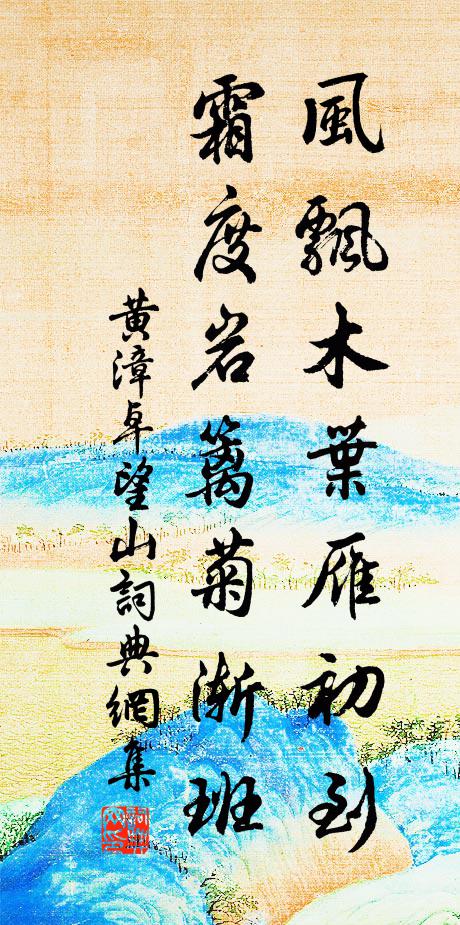 風飄木葉雁初到
霜度岩籬菊漸班
黄漳卓望山詞典網集